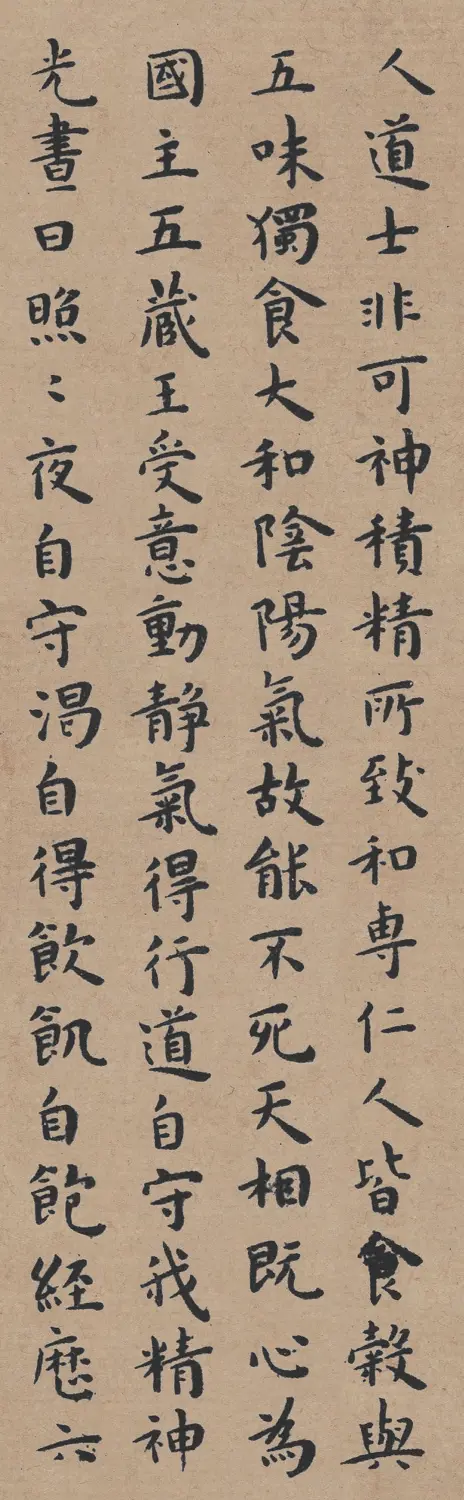 人道士非可神積精所致和専仁人皆食穀與
五味獨食大和陰陽氣故能不死天相既心為
國主五蔵王受意動静氣得行道自守我精神
光晝日照〻夜自守渇自得飲飢自飽經歴六